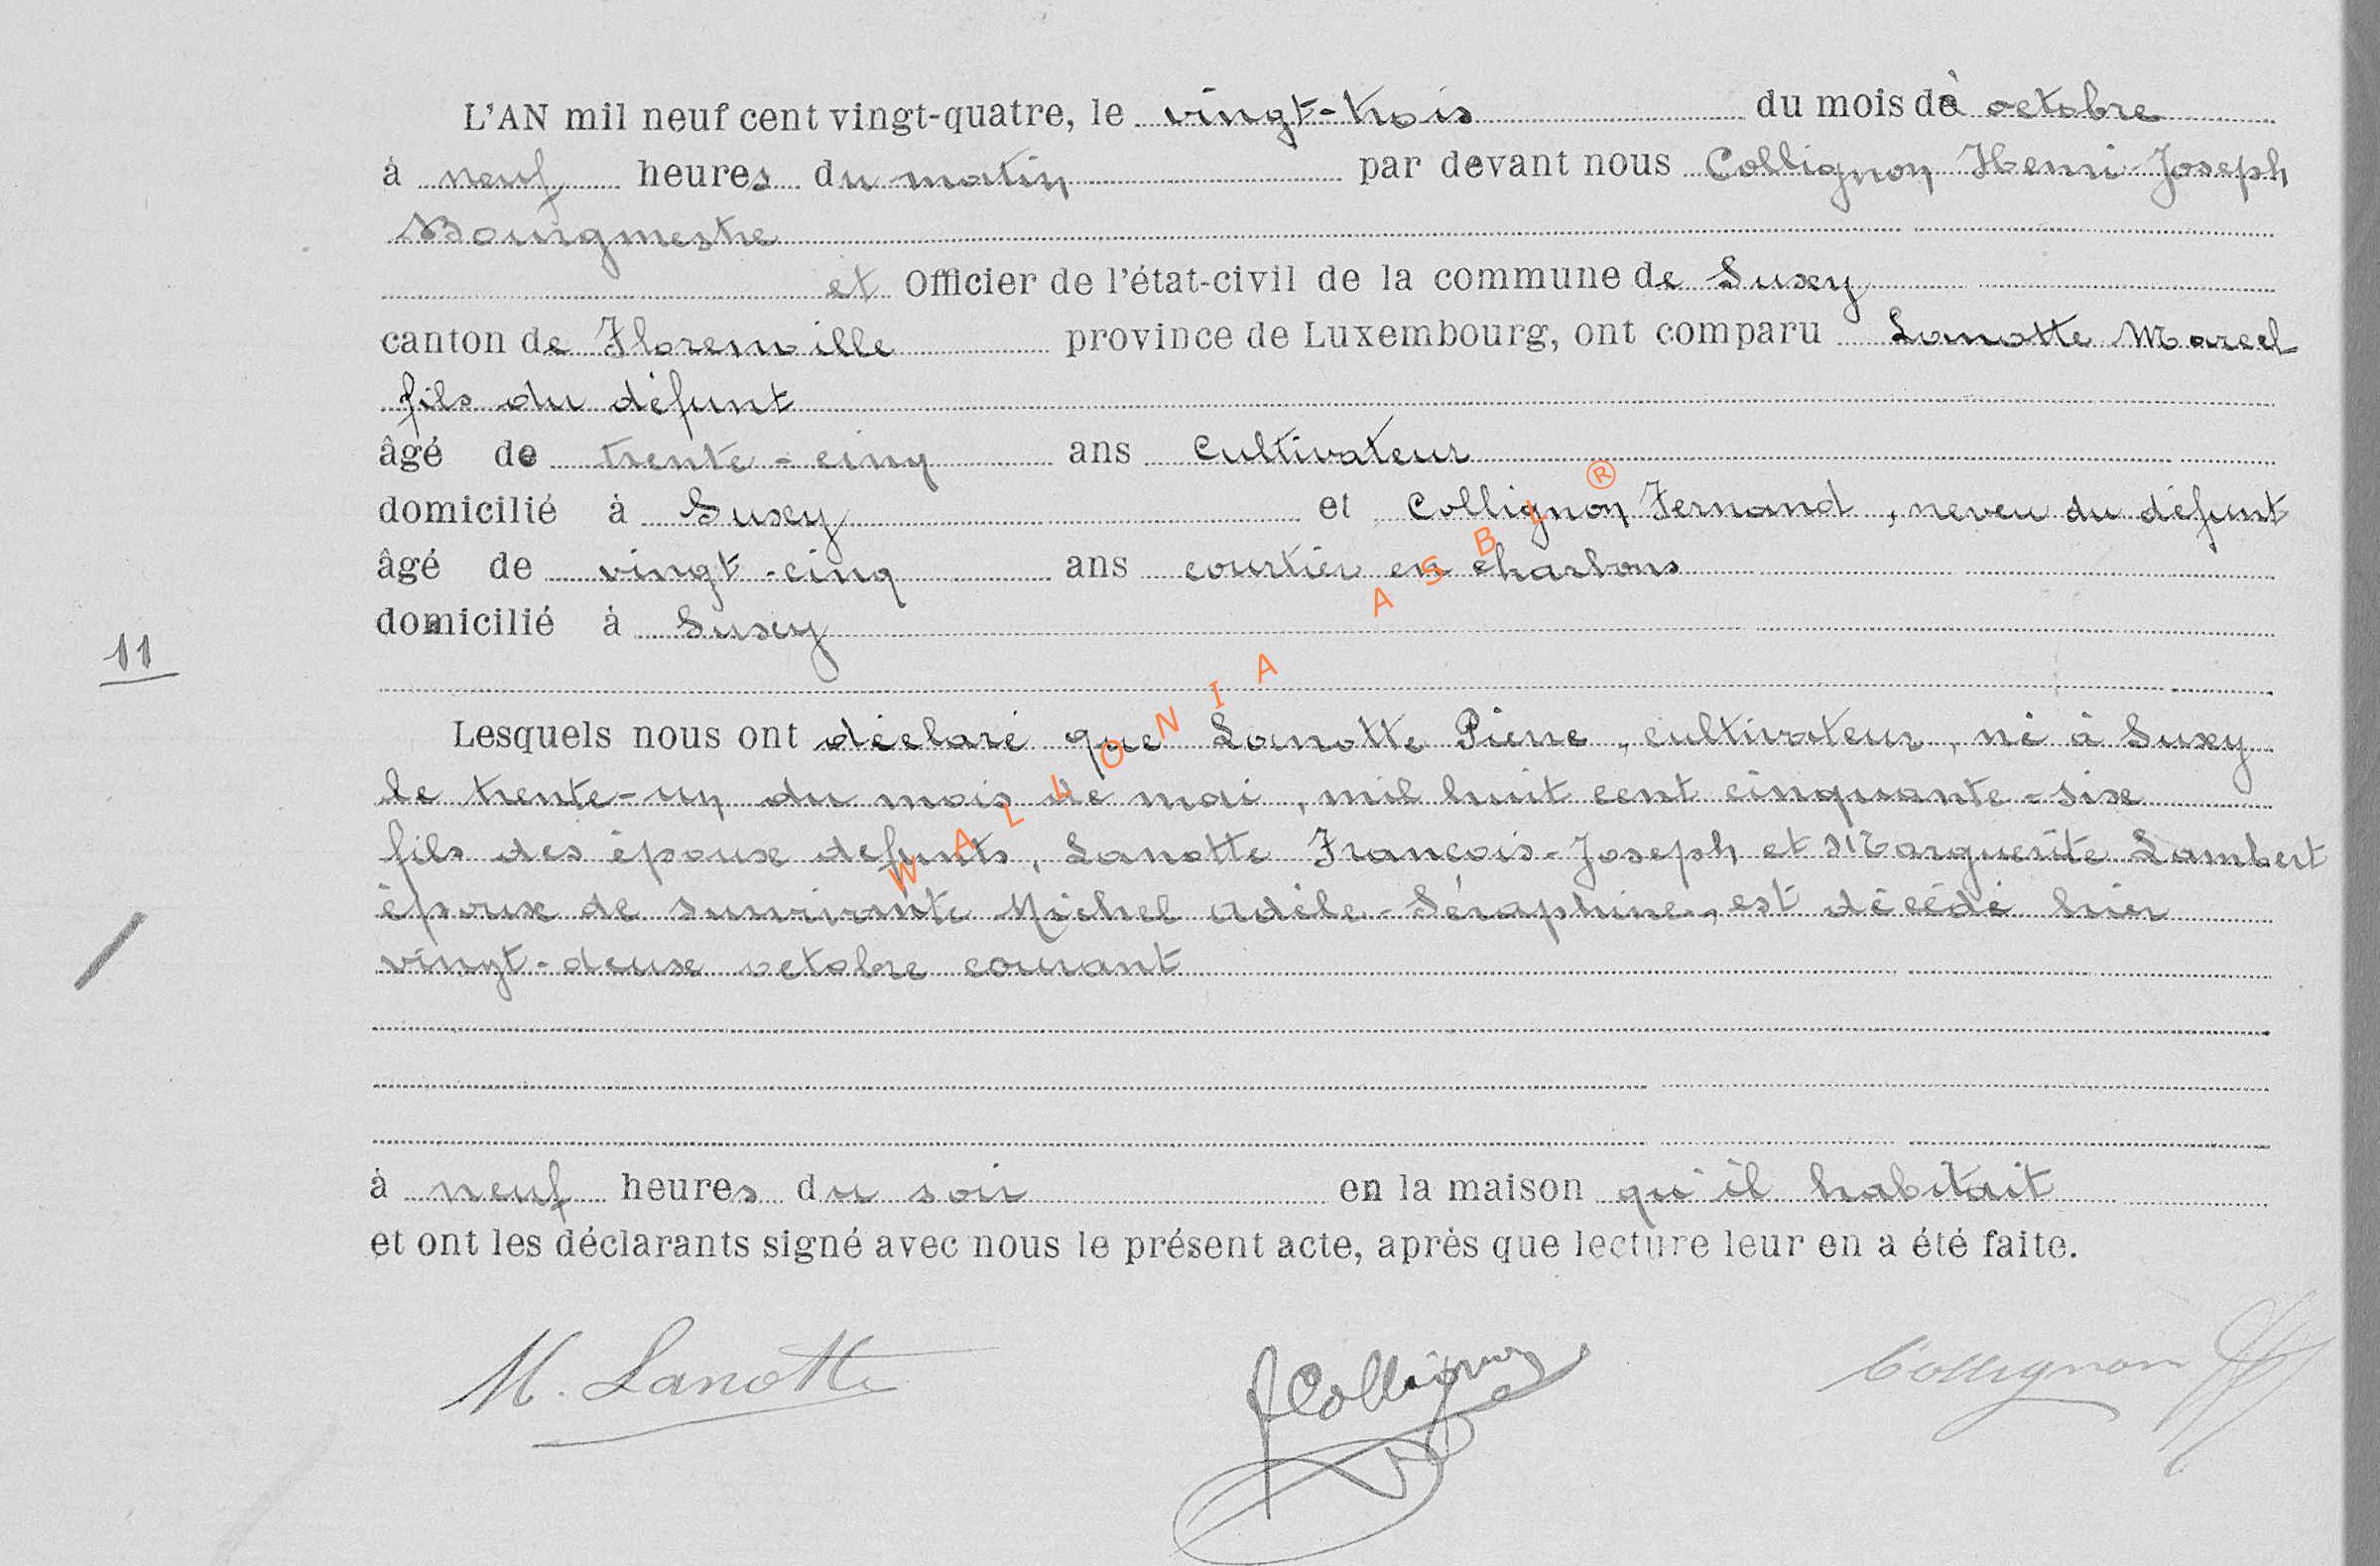 L'AN mil neuf cent vingt-quatre, le vingt-trois du mois d' octobre
à neuf heures du matin par devant nous Collignon Henri-Joseph
Bourgmestre
et Officier de l'état-civil de la commune de Suxy
canton de Florenville province de Luxembourg, ont comparu Lanotte Marcel
fils du défunt
âgé de trente-cinq ans Cultivateur
domicilié à Suxy et Collignon Fernand, neveu du défunt
âgé de vingt-cinq ans courtier en charbons
domicilié à Suxy
11
Lesquels nous ont déclaré que Lanotte Pierre, cultivateur, né à Suxy
le trente-un du mois de mai, mil huit cent cinquante-six
fils des époux defunts, Lanotte François-Joseph et Marguerite Lambert
époux de survivante Michel Adèle-Séraphine, est décédé hier
vingt-deux octobre courant
à neuf heures du soir en la maison qu'il habitait
et ont les déclarants signé avec nous le présent acte, après que lecture leur en a été faite.
M. Lanotte FCollignon Collignon
WALLONIA ASBL ®